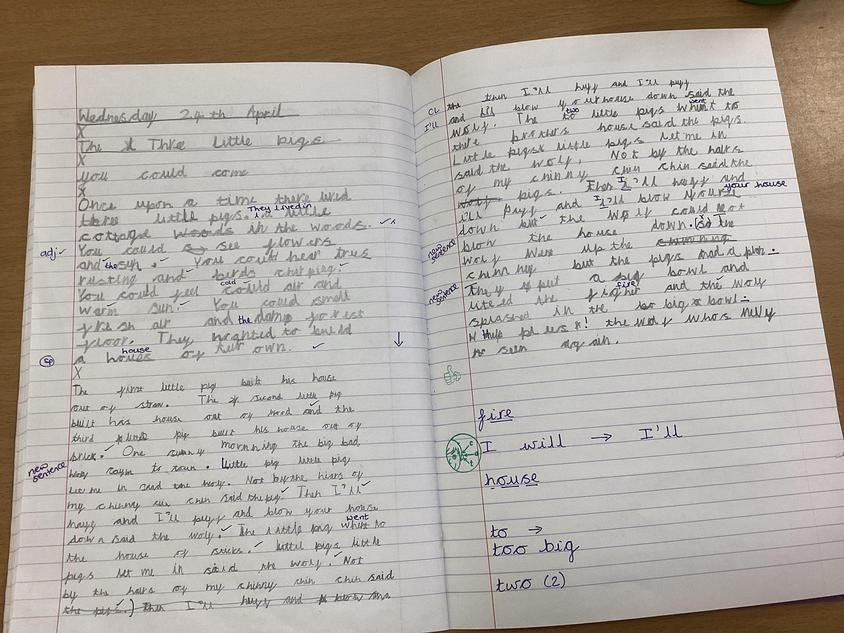 Wednesday 24th April
X
The Three Little pigs
X
you could come
X
Once upon a time there lived
three little pigs. They lived in little
cottage woods in the woods.
adj You could see flowers
and the sun. You could hear trus
rusting and birds chirping.
You could feel cold air and
warm sun. You could smell
fresh air and the damp forest
floor. They to build
sp a house of own.
X
The first little pig built his house
out of straw. The second little pig
built has house out of wood and the
third little pig built his house out of
brick. One sunny mornning the big bad
new sentence
wolf to town. little pig little pig
let me in said the wolf. Not by the hairs of
my chinny chin said the pig. Then I'll
huff and I'll puff and blow your house
down said the wolf. The little pig went to
the house of sticks. little pigs little
pigs let me in said the wolf. Not
by the hairs of my chinny chin chin said
the pigs.) Then I'll huff and blow the
the then I'll huff and I'll puff
I'll and ill blow your house down said the
wolf. The two little pigs went to
there brothers house said the pigs.
Little pigs little pigs let me in
said the wolf. Not by the hairs
of my chinny chin chin said the
pigs. Then I'll huff and
ill puff and I'll blow your house
down but the wolf could not
blow the house down. So the
new sentence
wolf went up the
chimney but the pigs had a plan.
new sentence
They put a big bowl and
lited the fire and the wolf
splashed in the big bowl.
the wolf was
seen
fire
I will → I'll
house
to →
too big
two (2)